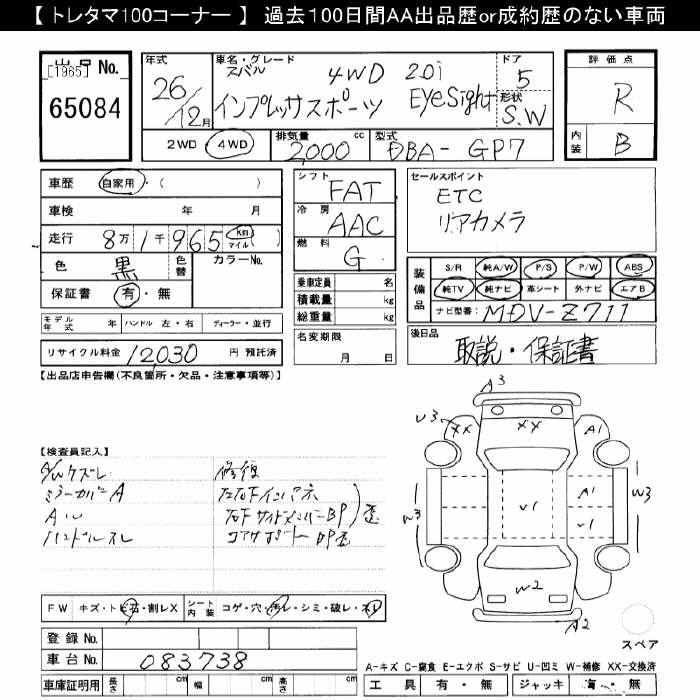 【 トレタマ100コーナー 】 過去100日間AA出品歴or成約歴のない車両
出品 No.
[1965]
65084
年式
26/12月
車名・グレード
スバル 4WD 2.0i
インプレッサスポーツ EyeSight
ドア
5
形状
S.W
評価点
R
内装
B
2WD・4WD
排気量 cc
2,000
型式
DBA- GP7
車歴 自家用・( )
車検 年 月
走行 8万1千965 km マイル ( )
色 黒 色替 カラーNo.
保証書 有・無
モデル年式 年 ハンドル 左・右 ディーラー・並行
リサイクル料金 12030 円 預託済
シフト FAT
冷房 AAC
燃料 G
乗車定員 名
積載量 kg
総重量 kg
名変期限
月 日
セールスポイント
ETC
リアカメラ
装備品
S/R 純A/W P/S P/W ABS
純TV 純ナビ 革シート 外ナビ エアB
ナビ型番: MDV-Z711
後日品
取説・保証書
【出品店申告欄(不良箇所・欠品・注意事項等)】
【検査員記入】
A/Wクズレ
ミラーカバーA
ハンドルスレ
修復
左右下インパネ
右下サイドメンバーBP
歪
コアサポート
A3
U3
XX
XX
A1
W3
W3
A1
V1
V1
W2
A2
スペア
FW キズ・トビ石・割レX シート内装 コゲ・穴・汚レ・シミ・破レ・スレ
登録 No.
車台 No. 083738
車庫証明用 長さ cm 幅 cm 高さ cm
A-キズ C-腐食 E-エクボ S-サビ U-凹ミ W-補修 XX-交換済
工具 有・無 ジャッキ 有・無